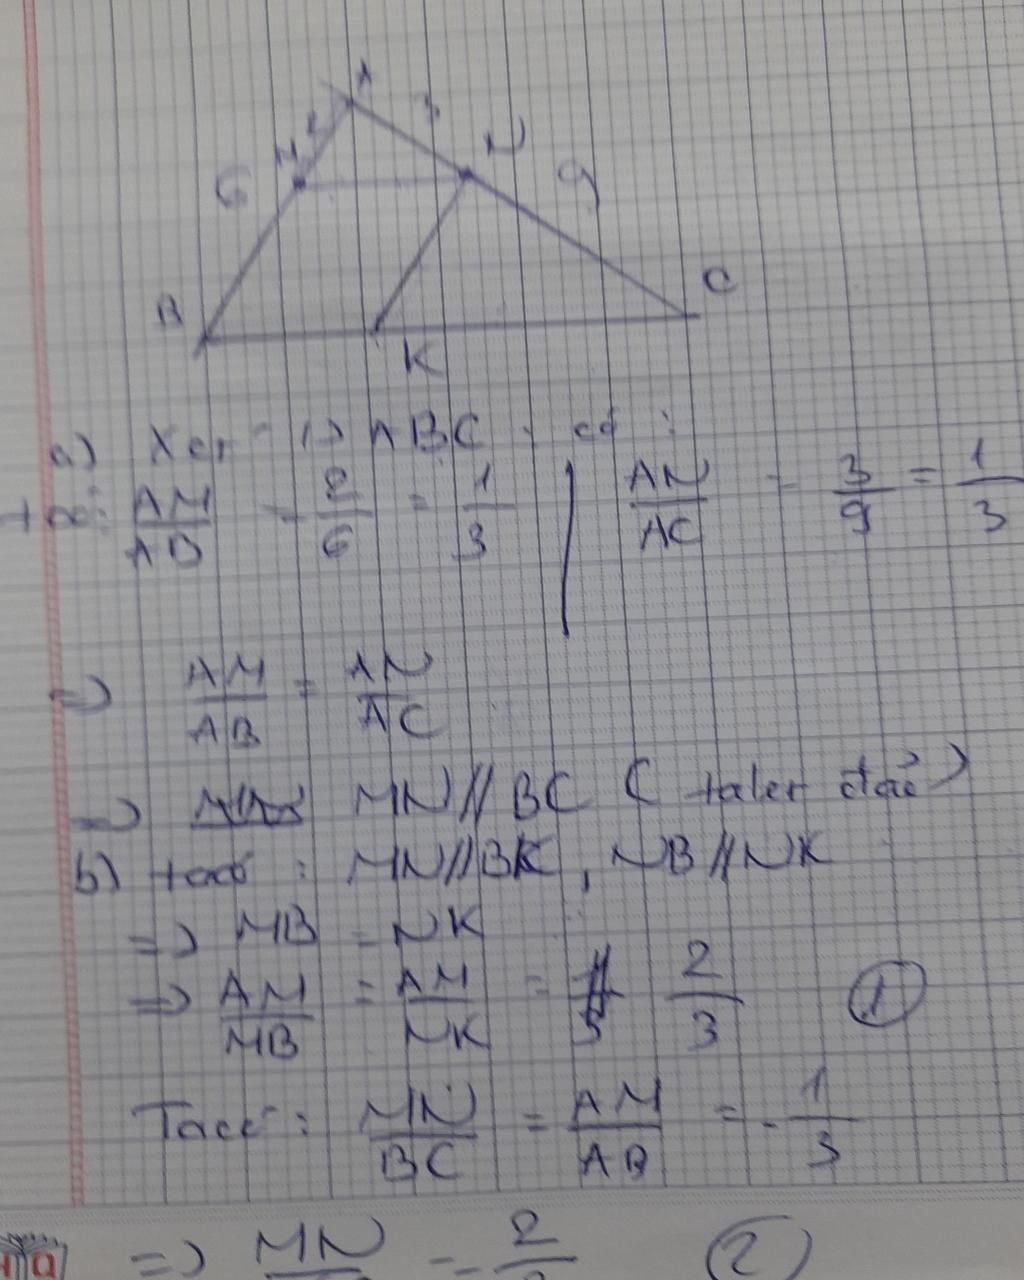 A
2 3
M N
6 9
B C
K
a) Xét ABC có :
ta có: AM/AB = 2/6 = 1/3 | AN/AC = 3/9 = 1/3
=> AM/AB = AN/AC
=> MN // BC ( talet đảo )
b) ta có : MN // BK , NB // NK
=> MB = NK
=> AM/MB = AM/NK = 2/3 ①
Ta có : MN/BC = AM/AB = 1/3
=> MN = 2 ②